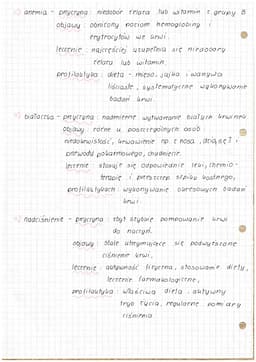 anemia - przyczyna: niedobór żelaza lub witamin z grupy B
objawy: obniżony poziom hemoglobiny i
erytrocytów we krwi.
leczenie: najczęściej uzupełnia się niedobory
żelaza lub witamin.
profilaktyka: dieta - mięso, jajka i warzywa
liściaste, systematyczne wykonywanie
badań krwi.
białaczka - przyczyna: nadmierne wytwarzanie białych krwinek
objawy: różne u poszczególnych osób:
niedokrwistość, krwawienie np z nosa, dziąseł i
przewodu pokarmowego, chudnięcie.
leczenie: stosuje się odpowiednie leki, chemio-
terapię i przeszczep szpiku kostnego,
profilaktyka: wykonywanie okresowych badań
krwi.
nadciśnienie - przyczyna: zbyt szybkie pompowanie krwi
do naczyń.
objawy: stale utrzymujące się podwyższone
ciśnienie krwi.
leczenie: aktywność fizyczna, stosowanie diety,
leczenie farmakologiczne,
profilaktyka: właściwa dieta, aktywny
tryb życia, regularne pomiary
ciśnienia